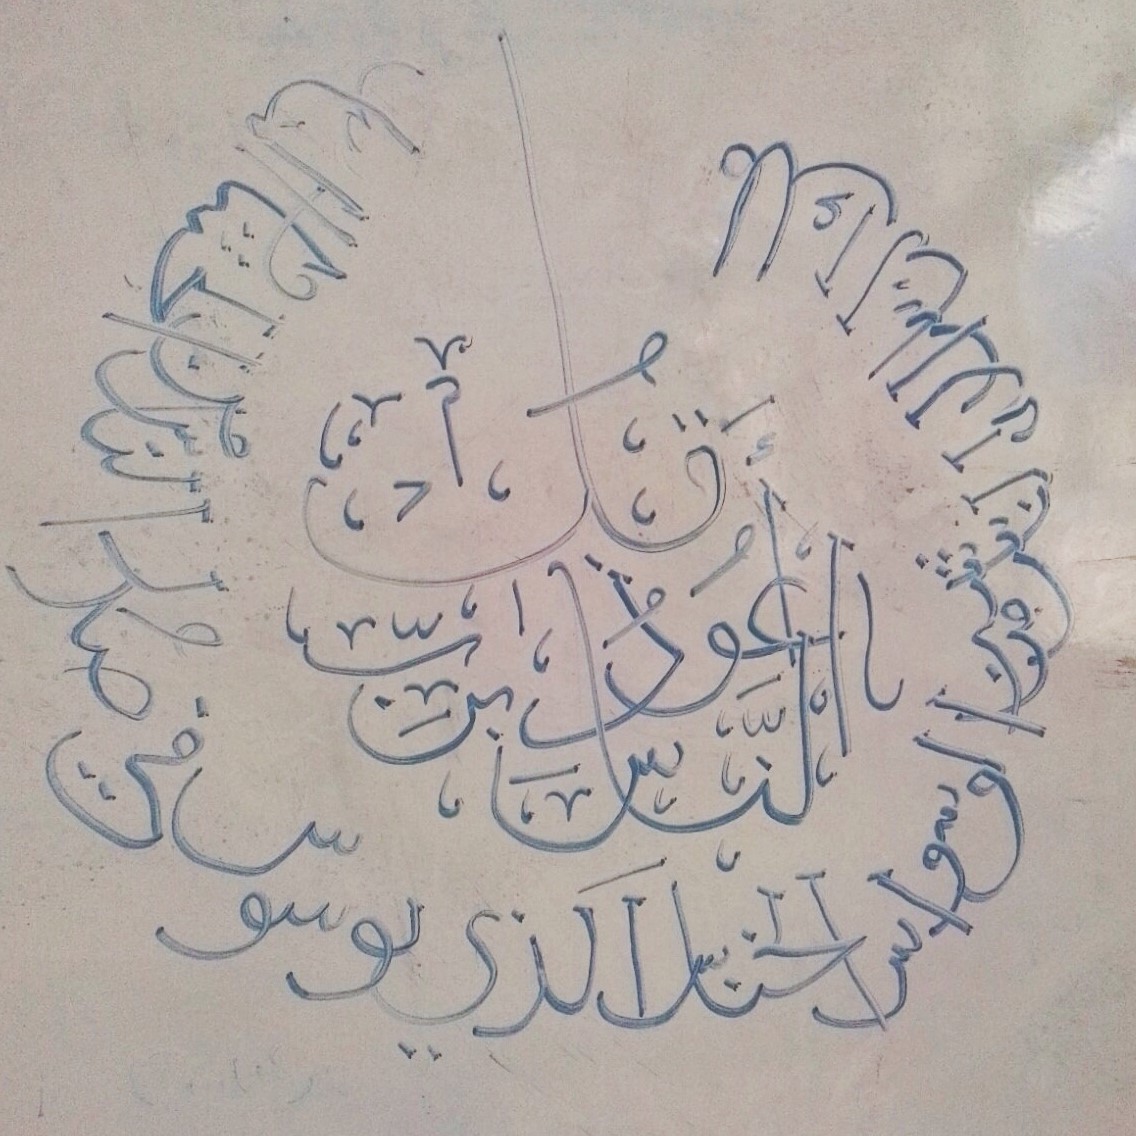 قُل
أَعُوذُ بِرَبِّ
النَّاسِ
ملك الناس اله الناس من شر الوسواس الخناس الذي يوسوس في صدور الناس من الجنة و الناس